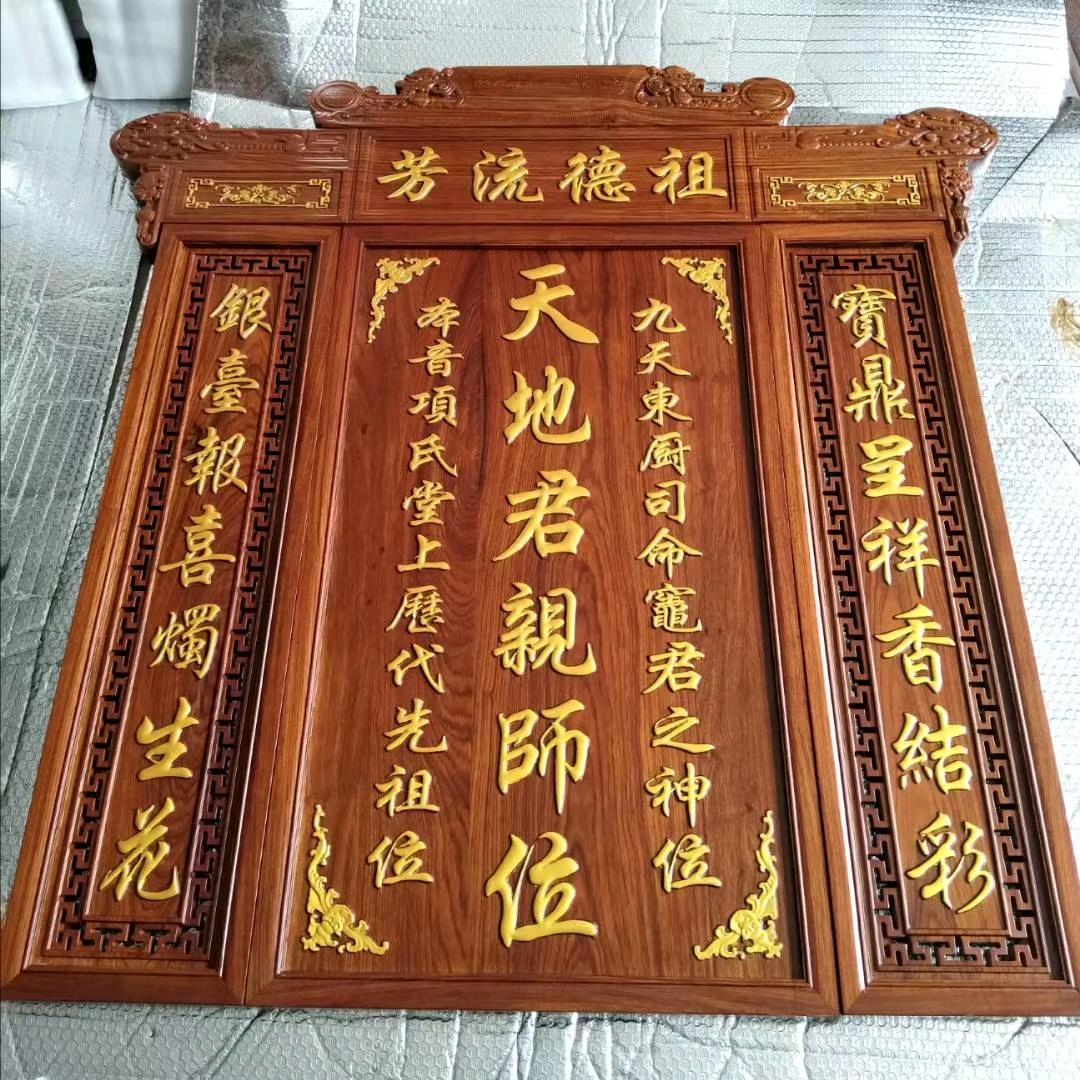 祖德流芳
寶鼎呈祥香結彩
九天東厨司命竈君之神位
天地君親師位
本音項氏堂上歷代先祖位
銀臺報喜燭生花